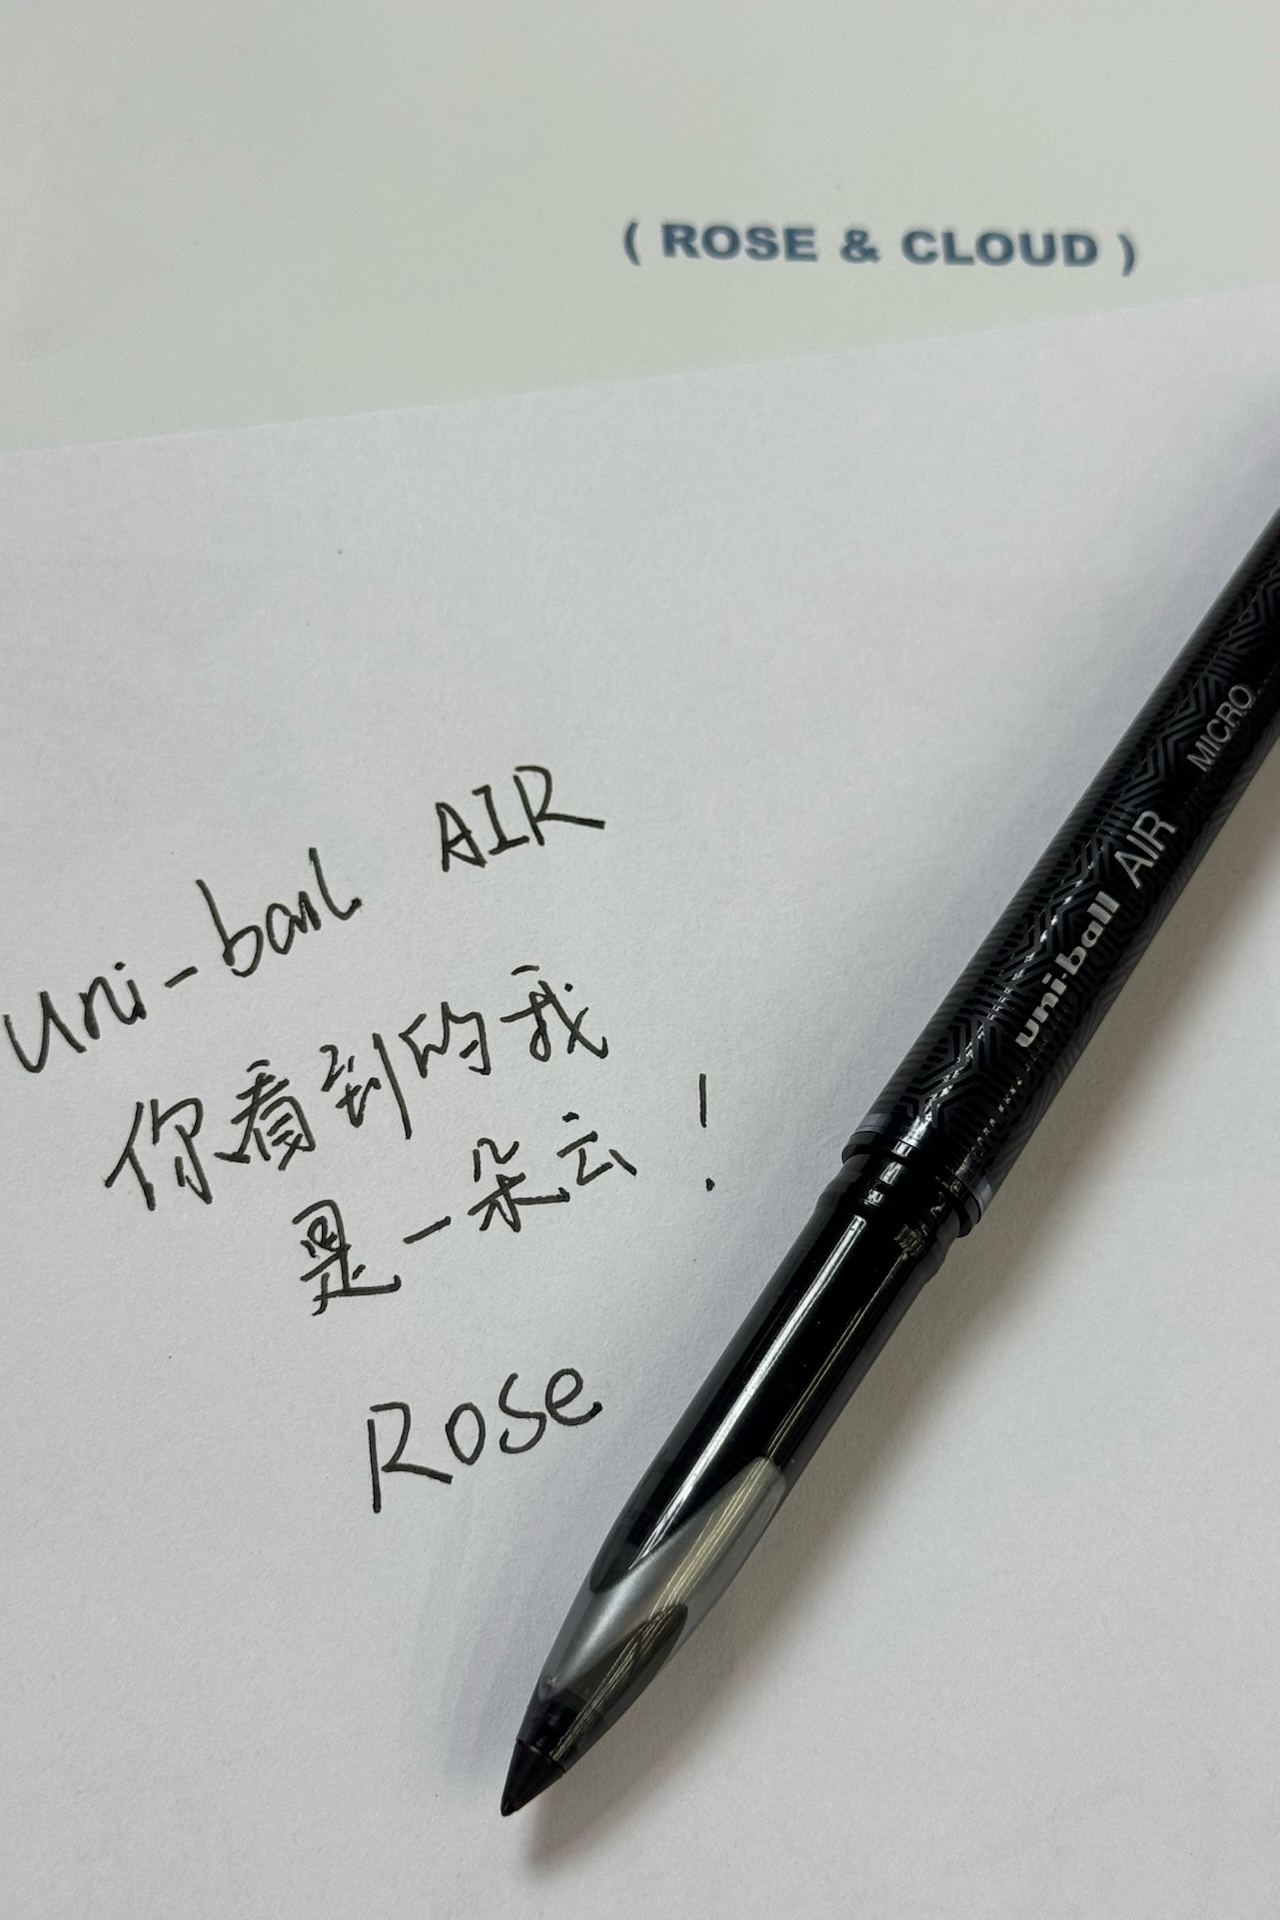 ( ROSE & CLOUD )
uni-ball AIR
你看到的我
是一朵云！
Rose
uni-ball AIR MICRO